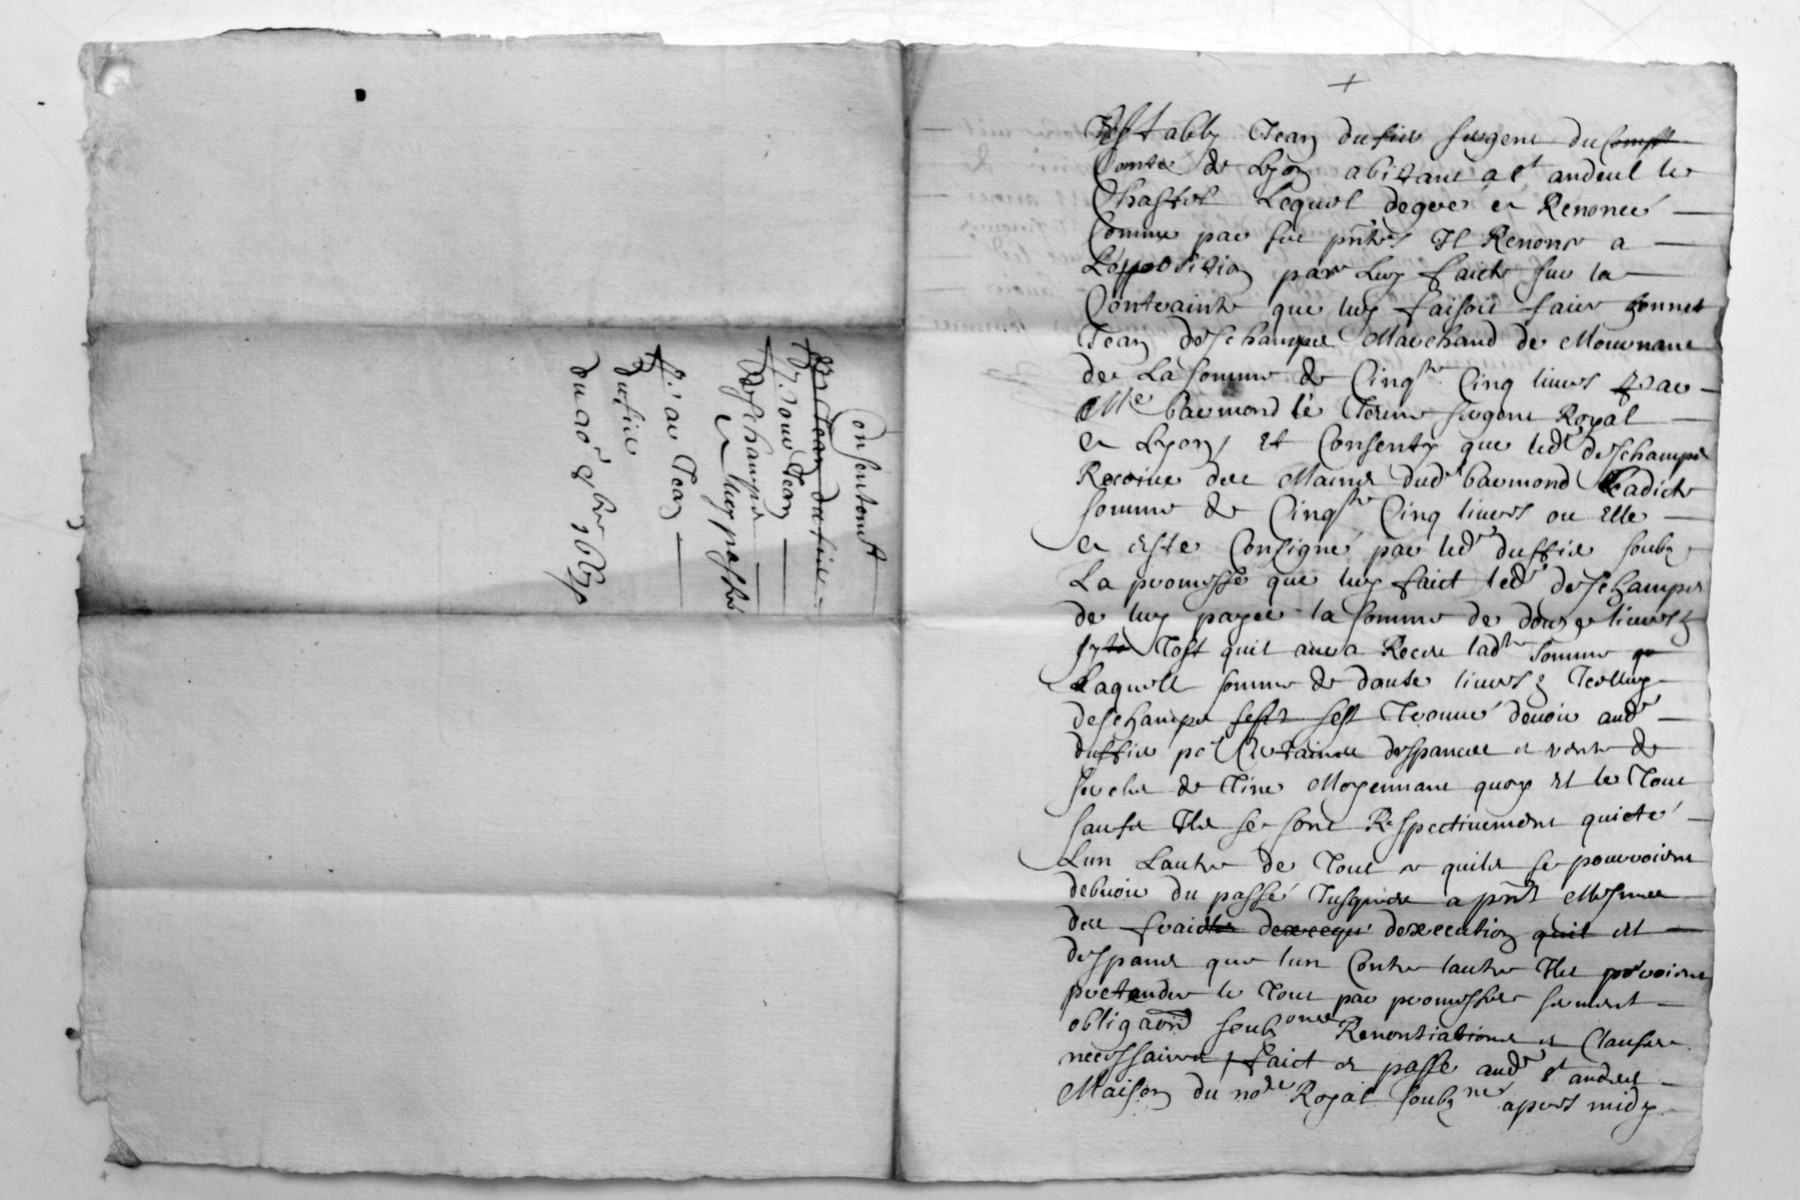 Consentement
Jean dufiie
po.r sieur Jean
deschamps
et luy passé
p.ar Jean
dufiie
du 20e 9bre 1667
+
Establj Jean dufiie sergent du Comte
Comte de Lyon abitant a St andeul le
Chastel Lequel de gre et Renoncé
Comme par ses pntes Il Renonce a
Lopposition par Luy faicte sur la
Contrainte que luy faisoit faire honnet
Jean deschamps Marchand de Mournant
de La somme de Cinqte Cinq livres par
Mre barmond le sergent Royal
a Lyon, Et Consenty que ledt deschamps
Recoive des Mains dudt barmond Ladicte
somme de Cinqte Cinq livres ou Elle
a este Consigné par ledt duffie soubz
La promesse que luy faict ledt deschamps
de luy payer la somme de douze livres
sy tost quil aura Receu ladte somme
Laquelle somme de douse livres Icelluy
deschamps sest sest trouvé devoir audt
duffie pr Certaines despances et vente de
de Moyennant quoy et le tout
saufs Ils se sont Respectivement quicté
Lun Lautre de tout ce quils se pouvoient
debvoir du passé Jusques a pnt Mesmes
des fraictes dexecqu dexecution quil et
despans que lun Contre lautre Ils pouvoient
pretendre le tout par promesses serment
obligaōn soubz Renontiations et Clauses
necessaires, faict et passé audt St andeul
Maison du nore Royal soubzné apres midy